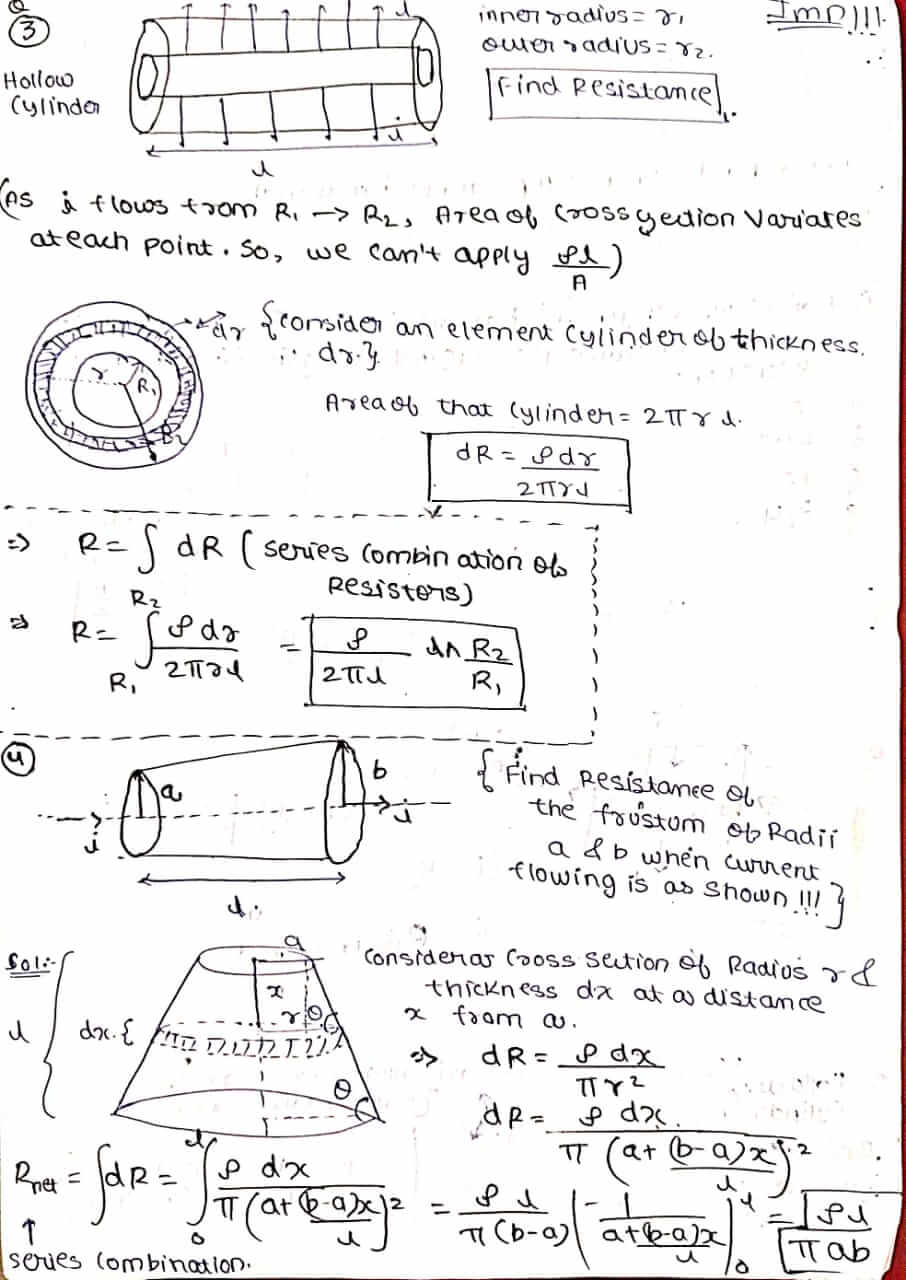 ③
inner radius = r₁
Imp!!!
outer radius = r₂.
Hollow
Cylinder
Find Resistance
i
i
l
(As i flows from R₁ → R₂, Area of Cross section Variates
at each point. So, we can't apply ρl/A)
dr {consider an element Cylinder of thickness
dr.}
r
R₁
R₂
Area of that Cylinder = 2πrl.
dR = ρdr / 2πrl
⇒ R = ∫ dR (series Combination of
Resistors)
⇒ R = ∫_{R₁}^{R₂} ρdr / 2πrl = ρ / 2πl ln R₂/R₁
④
a
b
i
i
l.
{Find Resistance of
the frustum of Radii
a & b when current
flowing is as shown!!!}
Sol:-
a
x
r
θ
θ
l
dx.{
Consider a Cross Section of Radius r &
thickness dx at a distance
x from a.
⇒ dR = ρ dx / πr²
dR = ρ dx / π(a + (b-a)x/l)²
Rnet = ∫dR = ∫₀^l ρ dx / π(a + (b-a)x/l)² = ρl / π(b-a) (-1 / a+(b-a)x/l)₀^l = ρl / πab
↑
series Combination.